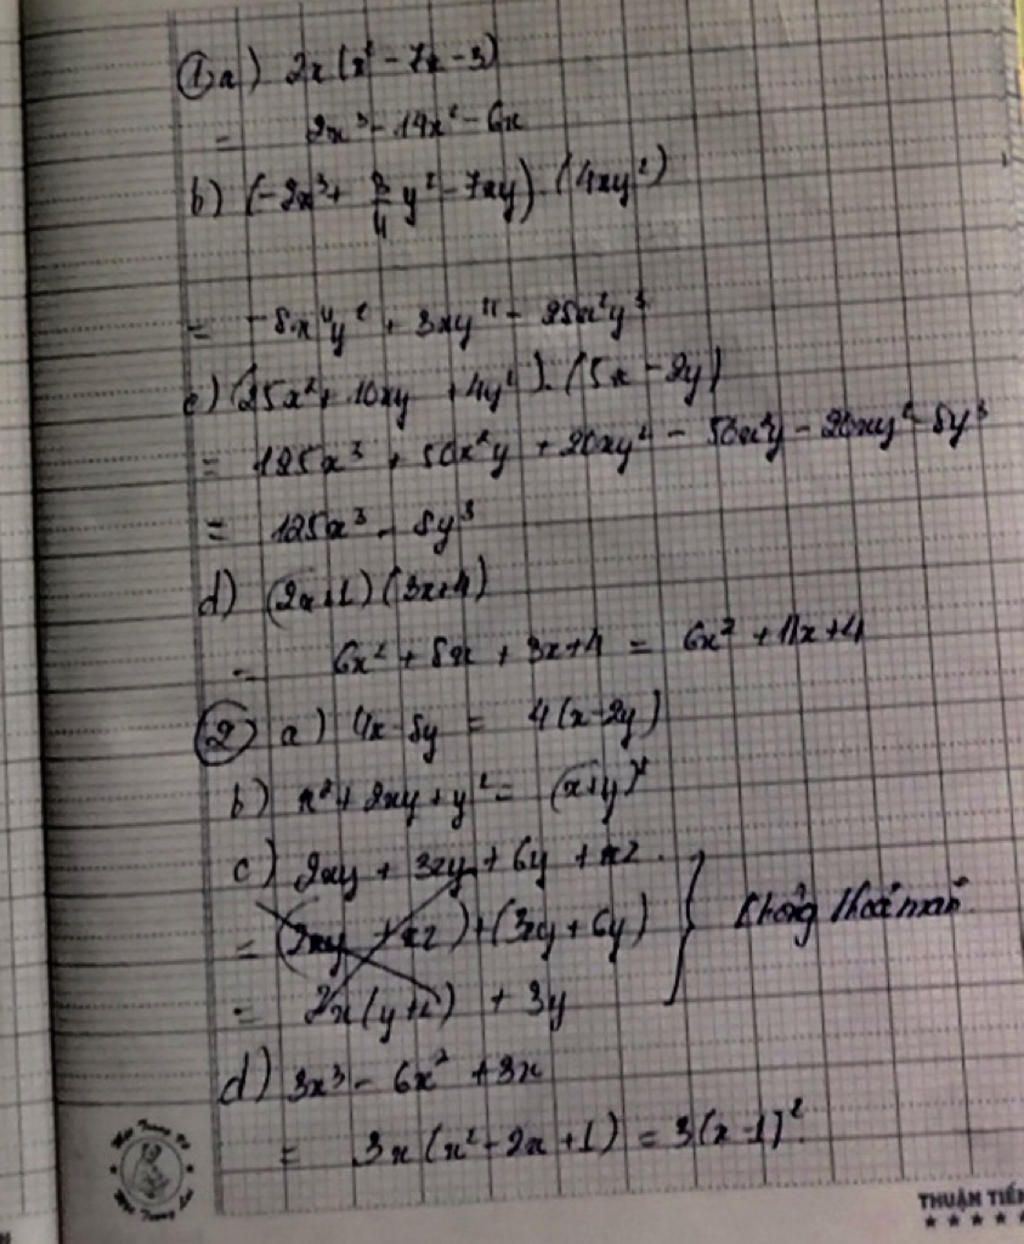 ① a) 2x(x² - 7x - 3)
= 2x³ - 14x² - 6x
b) (-2x³ + 3/4 y² - 7xy).(4xy²)
= -8x⁴y² + 3xy⁴ - 28x²y³
c) (25x² + 10xy + 4y²).(5x - 2y)
= 125x³ + 50x²y + 20xy² - 50x²y - 20xy² - 8y³
= 125x³ - 8y³
d) (2x+1)(3x+4)
= 6x² + 8x + 3x + 4 = 6x² + 11x + 4
② a) 4x - 8y = 4(x - 2y)
b) x² + 2xy + y² = (x+y)²
c) 2xy + 3zy + 6y + xz.
= (2xy + xz) + (3zy + 6y) } không thoả mãn
= 2x(y+z) + 3y
d) 3x³ - 6x² + 3x
= 3x(x² - 2x + 1) = 3(x - 1)².
THUẬN TIẾN